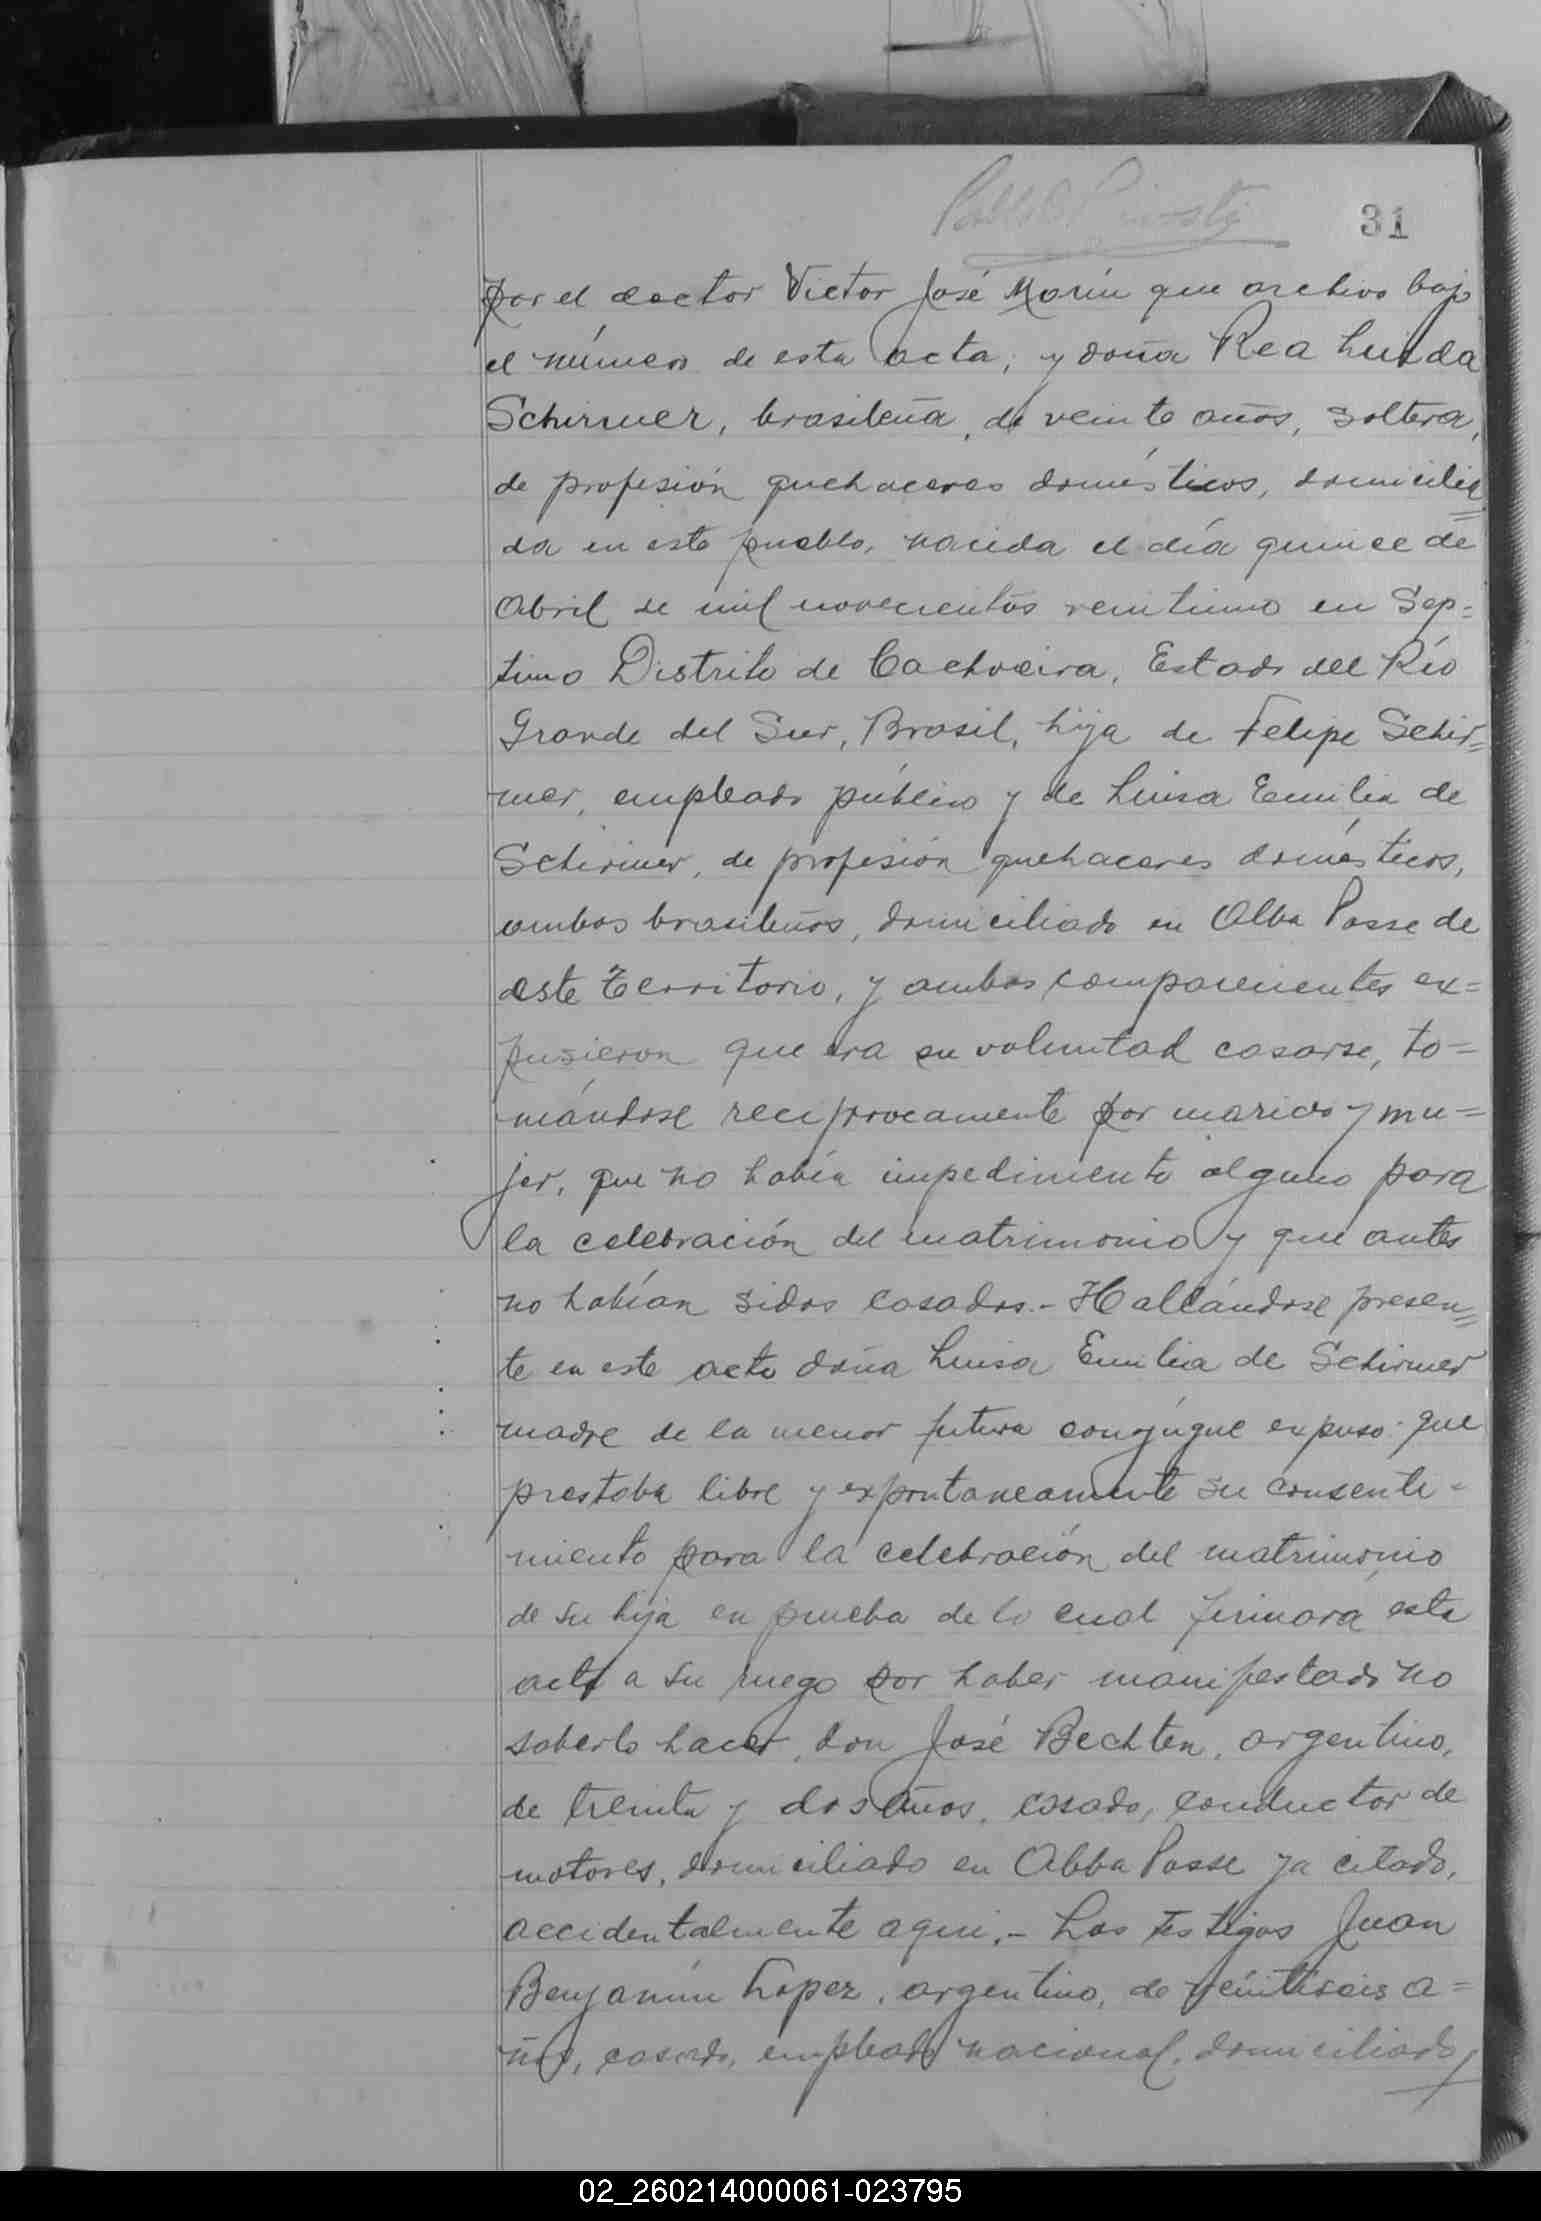 31
por el doctor Victor José Marín que archivo bajo
el número de esta acta; y doña Rea Luida
Schirmer, brasileña, de veinte años, soltera,
de profesión quehaceres domésticos, domicilia=
da en este pueblo, nacida el día quince de
Abril de mil novecientos veintiuno en Sep=
timo Distrito de Cachoeira, Estado del Río
Grande del Sur, Brasil, hija de Felipe Schir=
mer, empleado público y de Luisa Emilia de
Schirmer, de profesión quehaceres domésticos,
ambos brasileños, domiciliado en Alba Posse de
este territorio, y ambos comparecientes ex=
pusieron que era su voluntad casarse, to=
mándose reciprocamente por marido y mu=
jer, que no había impedimento alguno para
la celebración del matrimonio y que antes
no habían sidos casados.- Hallándose presen=
te en este acto doña Luisa Emilia de Schirmer
madre de la menor futura conyúgue expuso: que
prestaba libre y expontaneamente su consenti-
miento para la celebración del matrimonio
de su hija en prueba de lo cual firmará esta
acta a su ruego por haber manifestado no
saberlo hacer, don José Bechten, argentino,
de treinta y dos años, casado, conductor de
motores, domiciliado en Alba Posse ya citado,
accidentalmente aqui.- Los testigos Juan
Benjamín Lopez, argentino, de veintiseis a=
ños, casado, empleado nacional, domiciliado
02_260214000061-023795